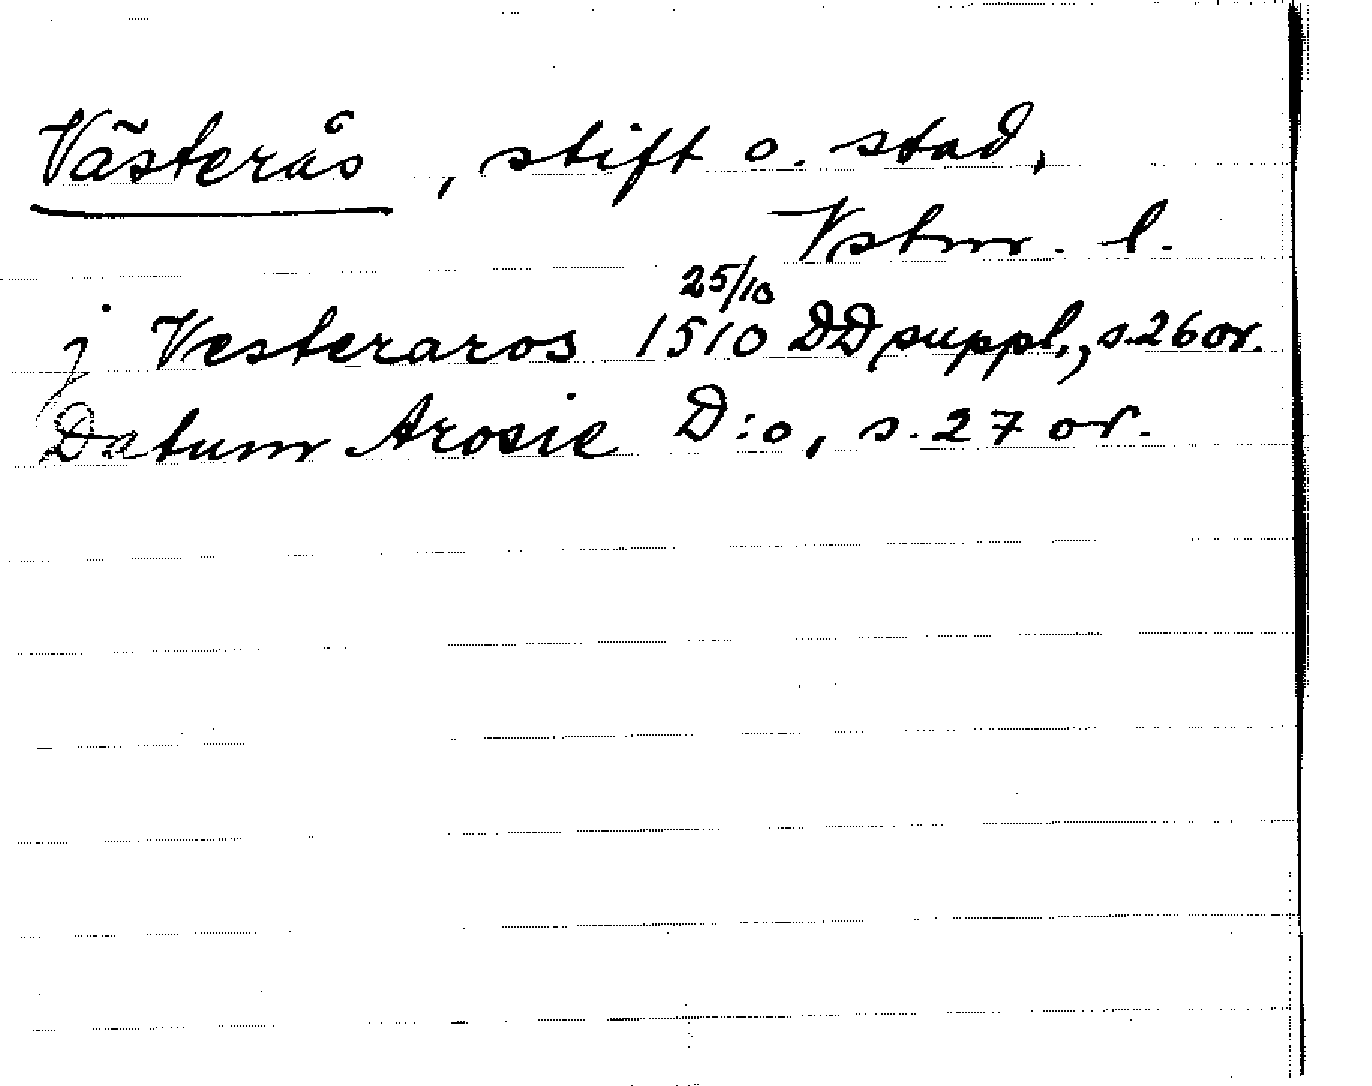 Västerås, stift o. stad,
Vstm. l.
25/10
j Vesteraros 1510 DD suppl., s. 26 or.
Datum Arosie D:o, s. 27 or.